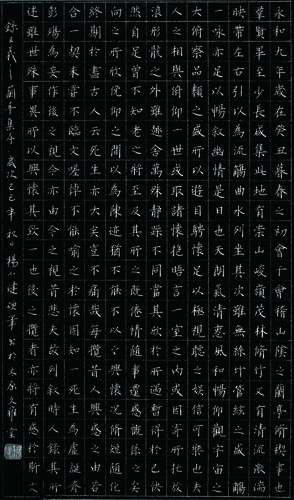 永和九年歲在癸丑暮春之初會于會稽山陰之蘭亭脩禊事也
群賢畢至少長咸集此地有崇山峻領茂林脩竹又有清流激湍
映帶左右引以為流觴曲水列坐其次雖無絲竹管絃之盛一觴
一詠亦足以暢敘幽情是日也天朗氣清惠風和暢仰觀宇宙之
大俯察品類之盛所以遊目騁懷足以極視聽之娛信可樂也夫
人之相與俯仰一世或取諸懷抱悟言一室之內或因寄所託放
浪形骸之外雖趣舍萬殊靜躁不同當其欣於所遇暫得於己快
然自足曾不知老之將至及其所之既倦情隨事遷感慨係之矣
向之所欣俛仰之間以為陳迹猶不能不以之興懷況脩短隨化
終期於盡古人云死生亦大矣豈不痛哉每攬昔人興感之由若
合一契未嘗不臨文嗟悼不能喻之於懷固知一死生為虛誕齊
彭殤為妄作後之視今亦由今之視昔悲夫故列敘時人錄其所
述雖世殊事異所以興懷其致一也後之攬者亦將有感於斯文
錄王羲之蘭亭集序歲次己巳年秋日楊筆書於太原文雅堂